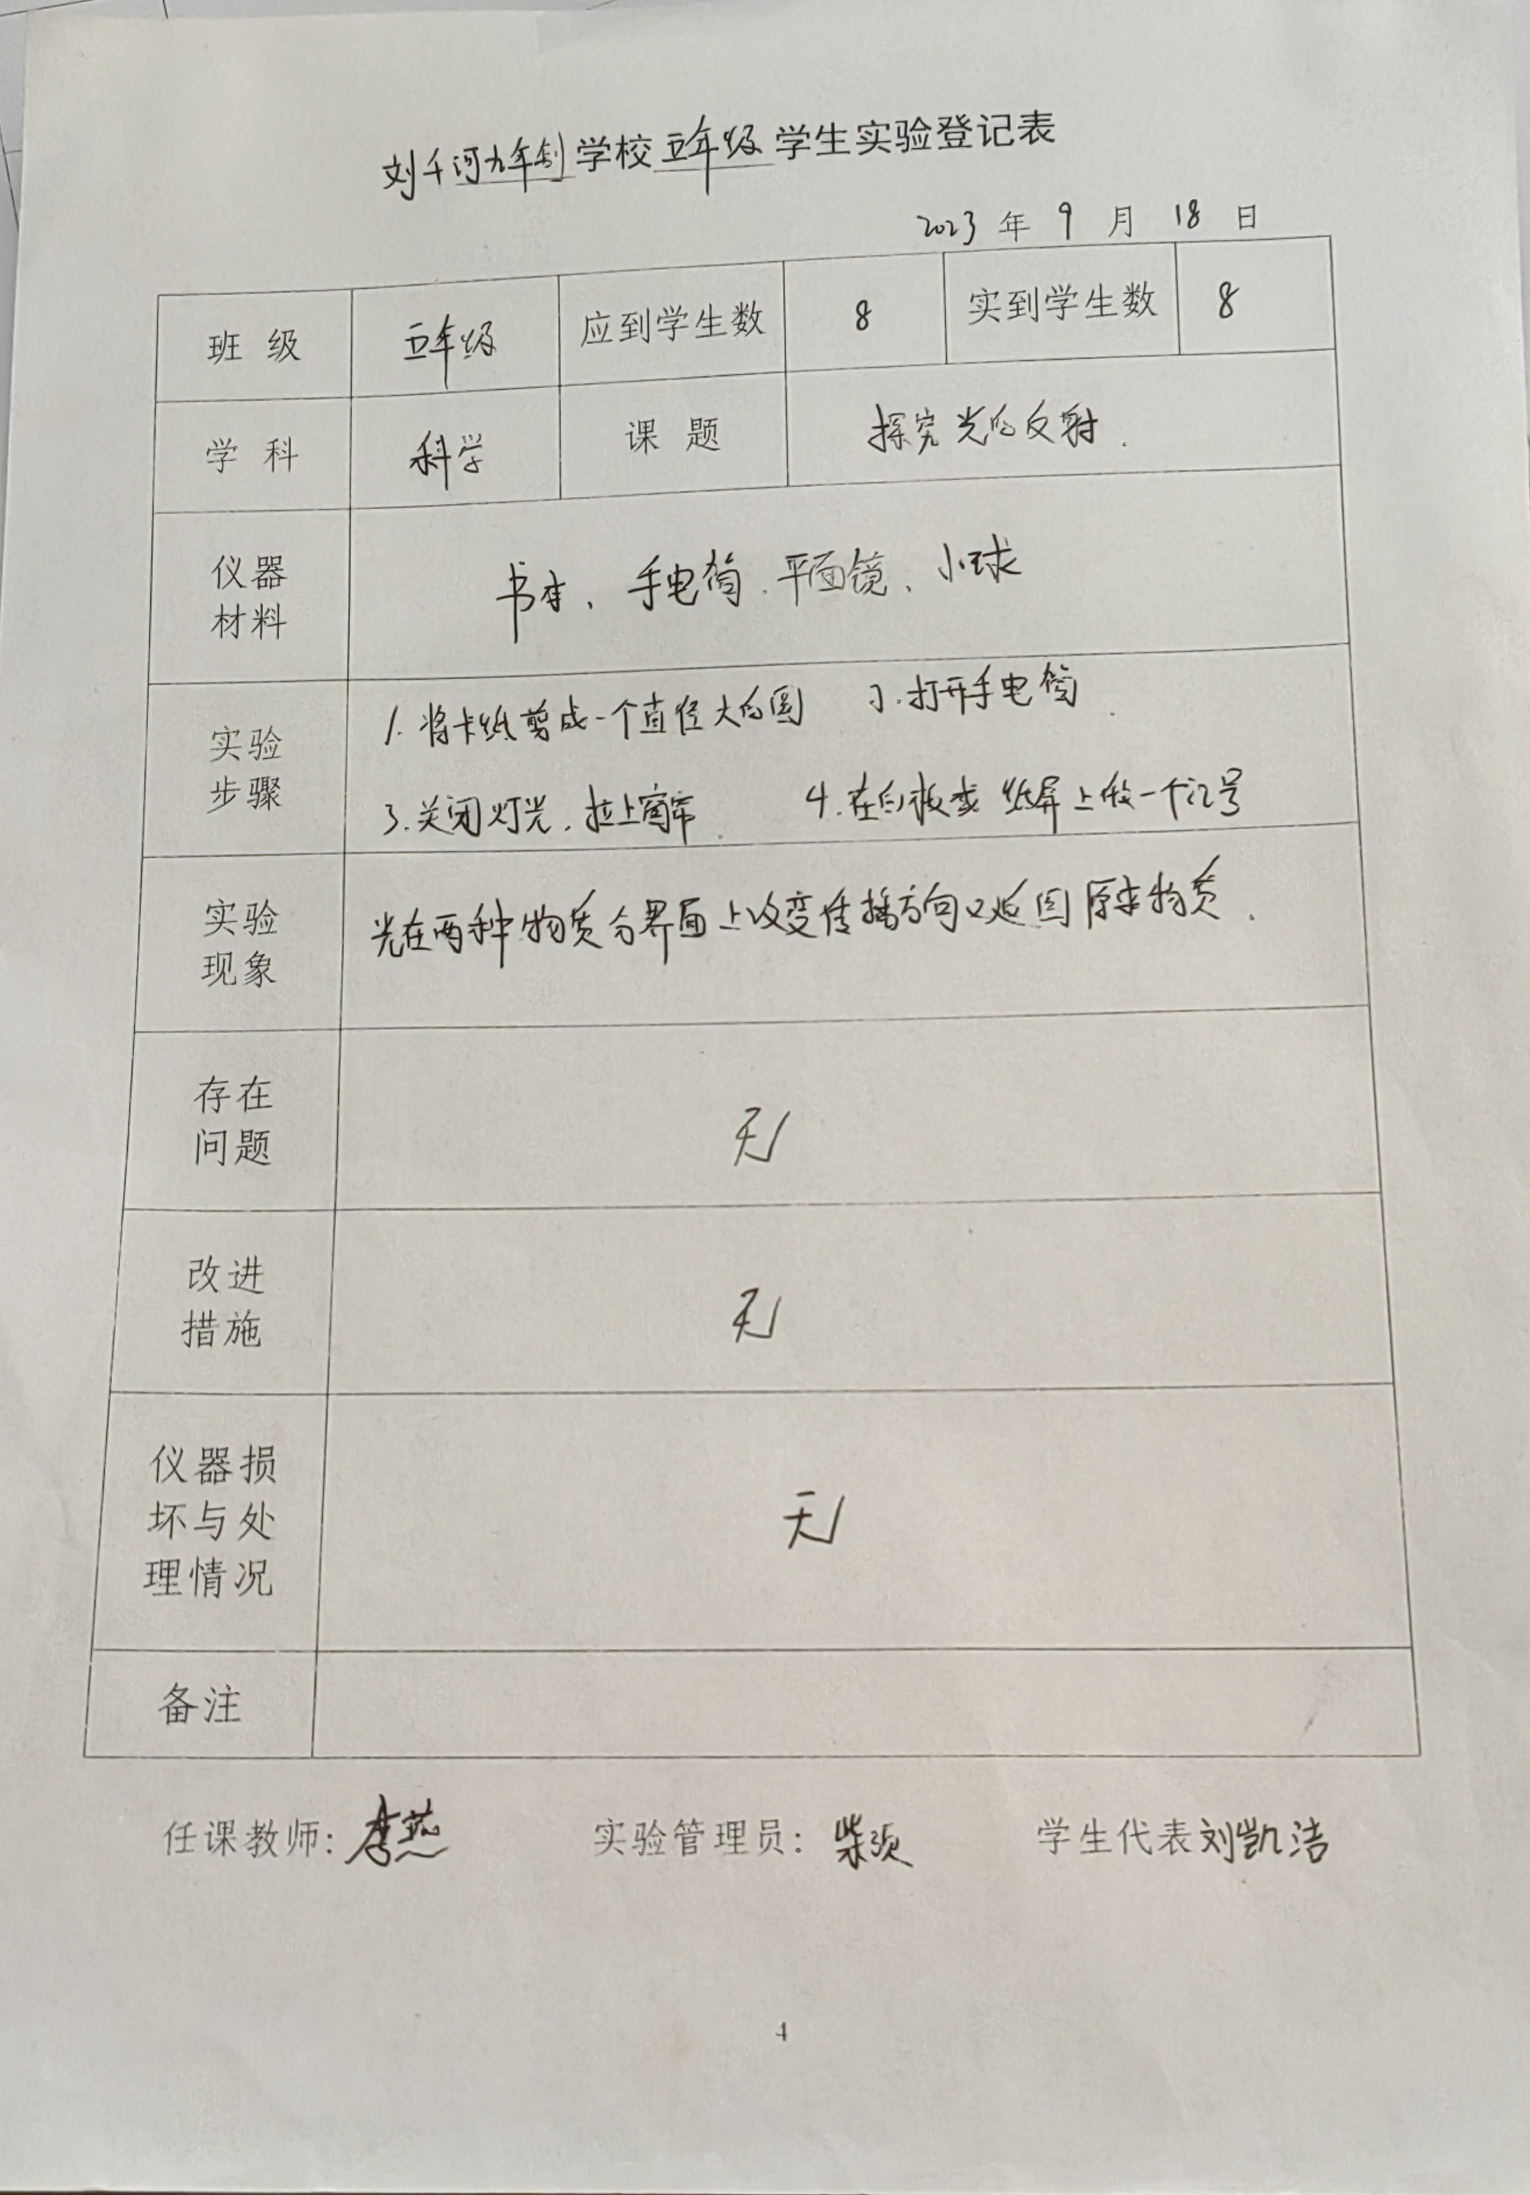 刘千河九年制学校五年级学生实验登记表
2023 年 9 月 18 日
班 级 五年级 应到学生数 8 实到学生数 8
学 科 科学 课 题 探究光的反射.
仪器
材料
书本、手电筒、平面镜、小球
实验
步骤
1. 将卡纸剪成一个直径大的圆 2. 打开手电筒.
3. 关闭灯光、拉上窗帘. 4. 在白板或纸屏上做一个记号
实验
现象
光在两种物质分界面上改变传播方向又返回原来物质.
存在
问题
无
改进
措施
无
仪器损
坏与处
理情况
无
备注
任课教师: 李燕 实验管理员: 柴须 学生代表 刘凯洁
4